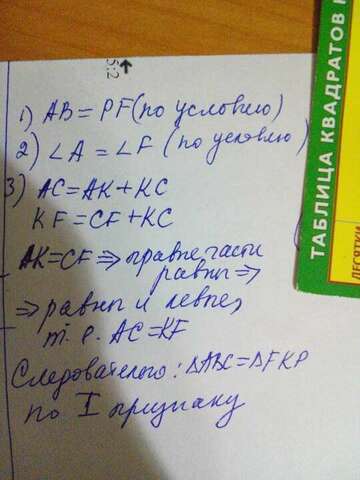 5:2
1) AB = PF (по условию)
2) ∠A = ∠F (по условию)
3) AC = AK + KC
KF = CF + KC
AK = CF ⇒ правые части
равны ⇒
⇒ равны и левые,
т. е. AC = KF
Следовательно: ΔABC = ΔFKP
по I признаку
ТАБЛИЦА КВАДРАТОВ
ДЕСЯТКИ